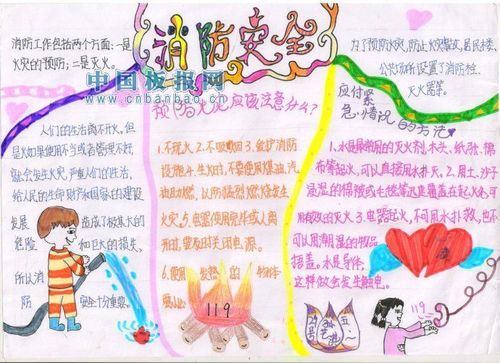 消防安全
中国板报网
www.cnbanbao.cn
消防工作包括两个方面:一是
火灾的预防;二是灭火。
人们的生活离不开火。但
是如果使用不当或者管理不好
就会发生火灾,严重人们的生活,
给人民的生命财产和国家的建设
发展 造成了极其大的
危险 和巨大的损失,
所以消
防 安全十分重要。
预防火灾应该注意什么?
1.不玩火 2.不吸烟 3.爱护消防
设施 4.生火时,不要使用煤油,汽
油助燃,以防猛烈燃烧发生
火灾 5.电器使用完毕或人离
开时,要及时关闭电源。
6.使用 发热的 物件
要小心
119
为了预防火灾,防止火警,居民楼,
公共场所设置了消防栓,
灭火器等。
应付紧
急情况的方法
1.水是最常用的灭火剂,木头,纸张,棉
布等起火,可以直接用水扑灭。2.用土,沙子
浸湿的棉被或毛毯等迅速覆盖在起火处,可
用有效的灭火。3.电器起火,不可用水扑救,也不
可以用潮湿的物品
捂盖。水是导体,
这样做会发生触电。
119